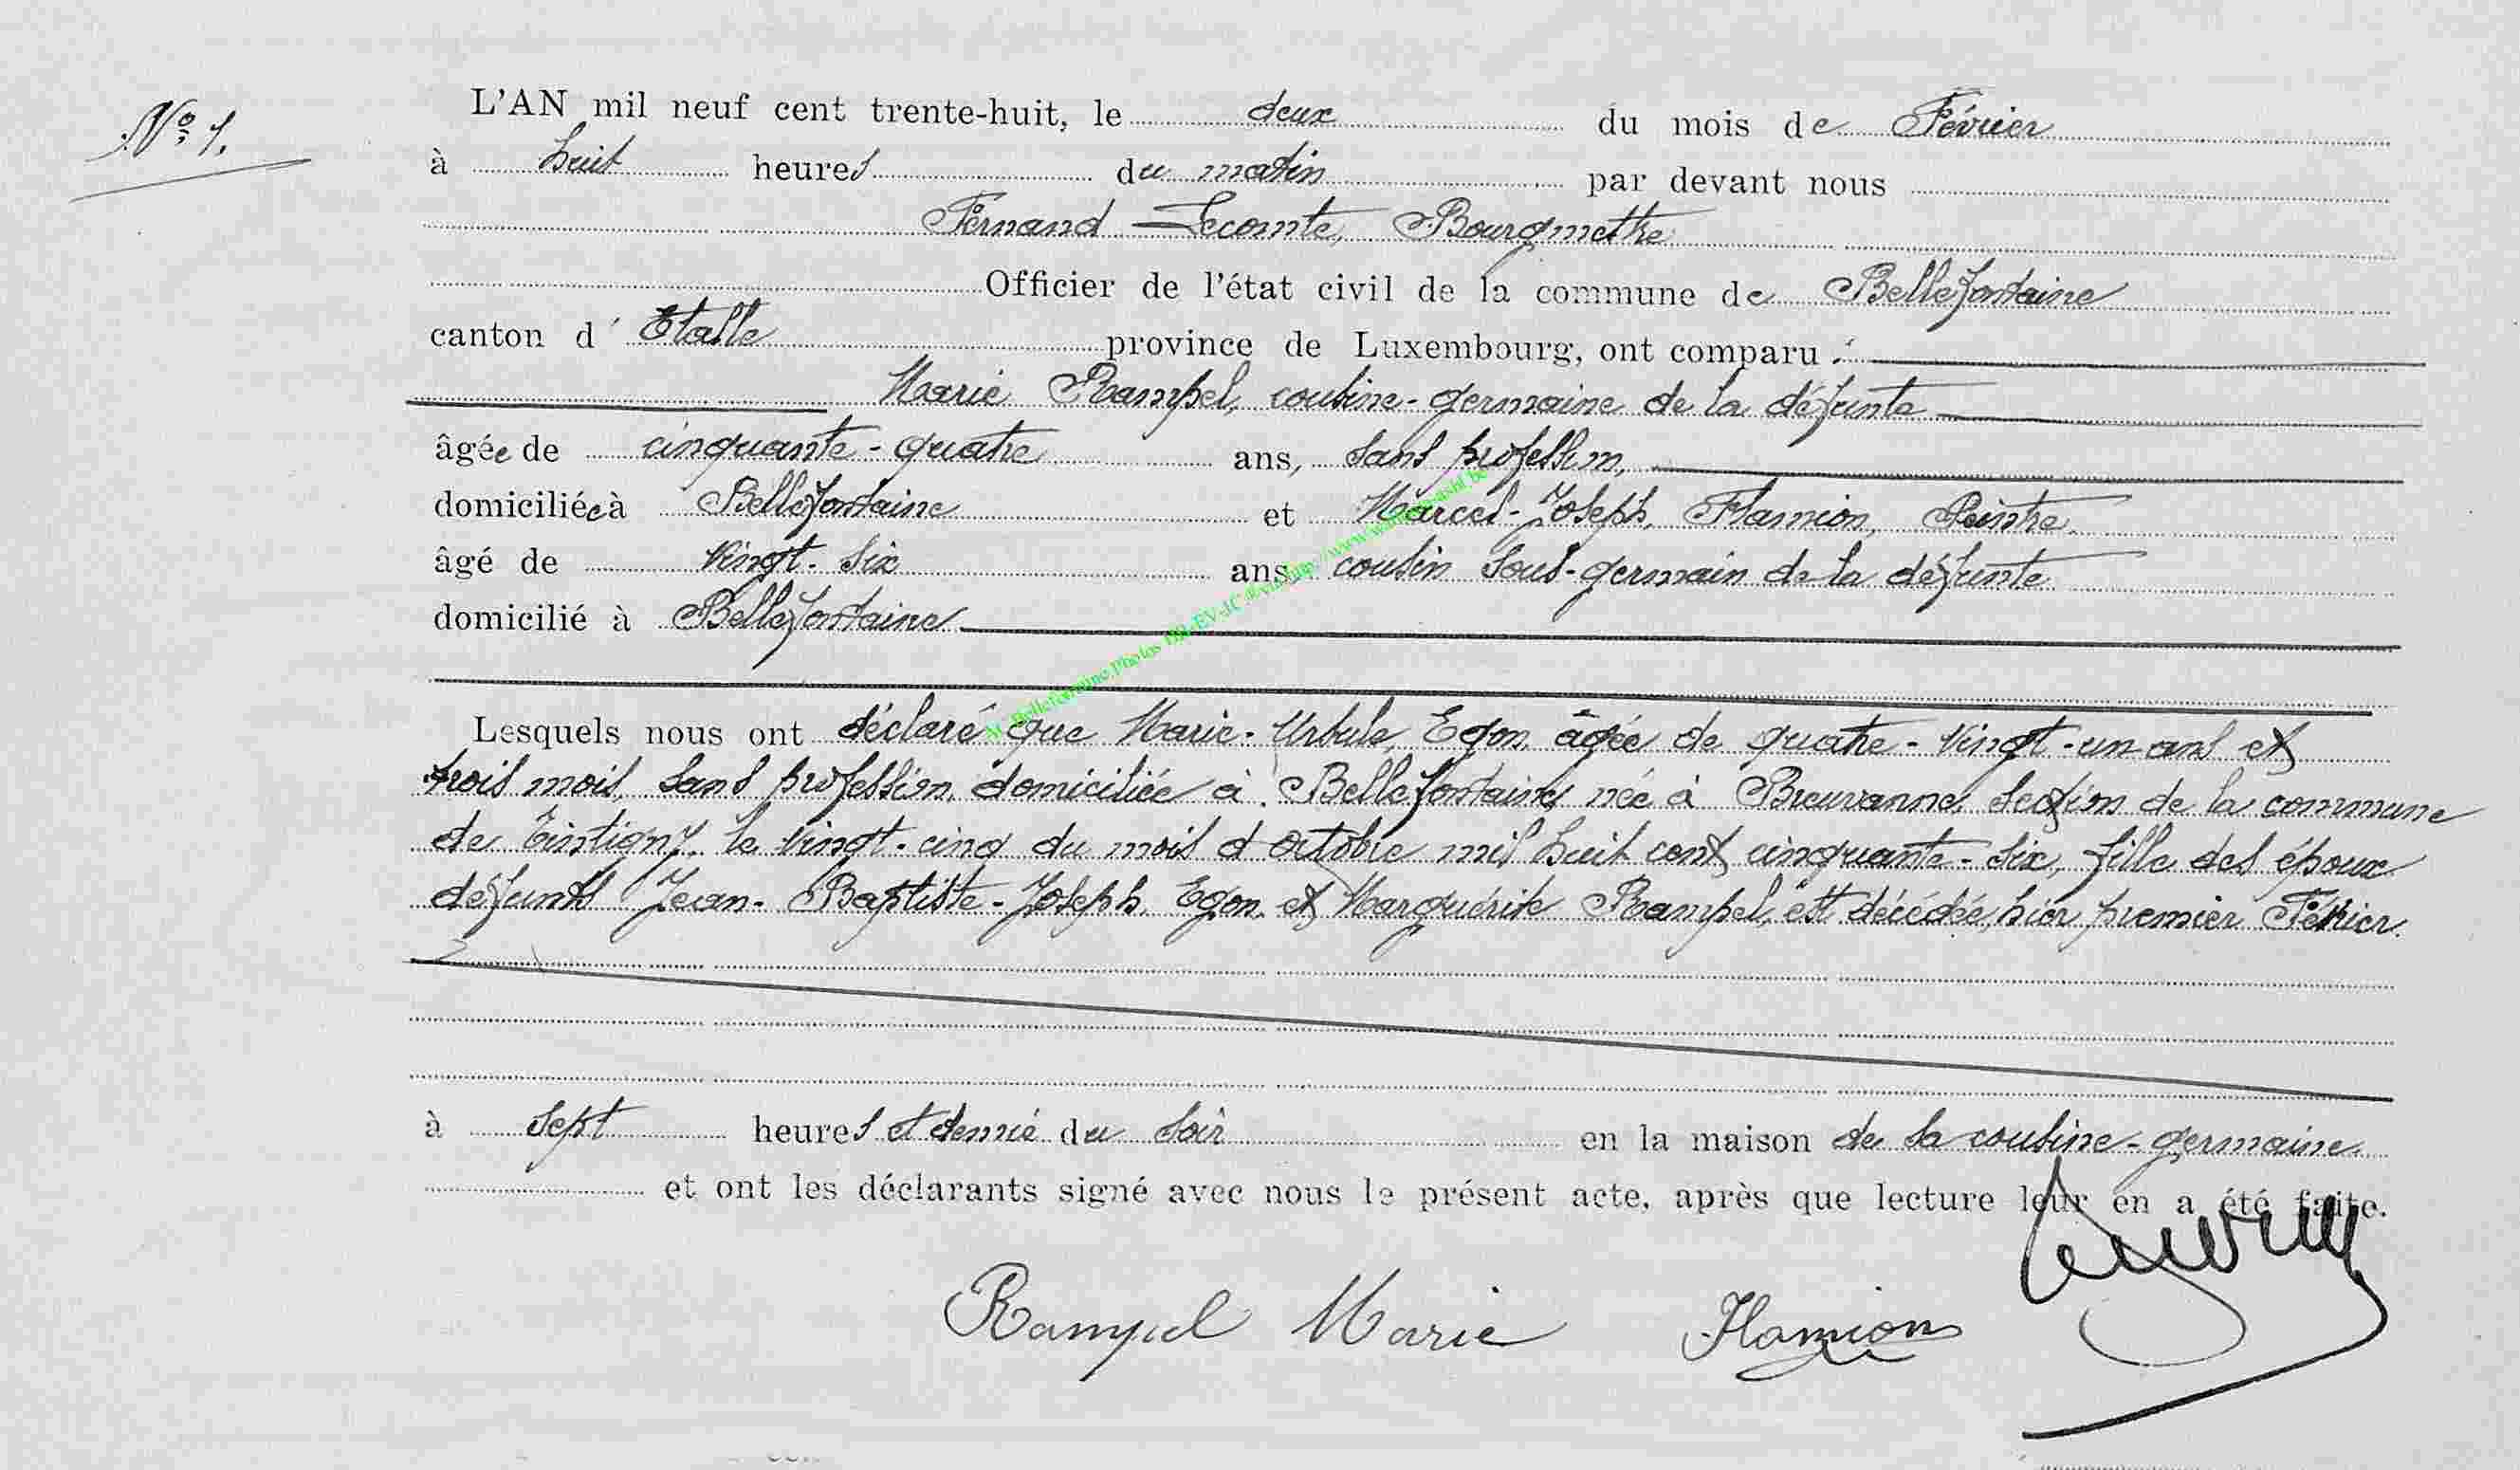 N° 1.
L'AN mil neuf cent trente-huit, le deux du mois de Février
à huit heures du matin par devant nous
Fernand Lecomte, Bourgmettre
Officier de l'état civil de la commune de Bellefontaine
canton d' Etalle province de Luxembourg, ont comparu :
Marie Rampel, cousine-germaine de la défunte
âgée de cinquante-quatre ans, sans profession,
domiciliée à Bellefontaine et Marcel-Joseph, Flamion, Peintre.
âgé de vingt-six ans, cousin sous-germain de la défunte
domicilié à Bellefontaine
Lesquels nous ont déclaré que Marie-Ursule, Egon, âgée de quatre-vingt-un ans et
trois mois, sans profession, domiciliée à Bellefontaine, née à Breuvanne, section de la commune
de Tintigny, le vingt-cinq du mois d'octobre mil huit cent cinquante-six, fille des époux
défunts Jean-Baptiste-Joseph, Egon, et Marguérite Rampel, est décédée, hier premier Février.
à sept heures et demie du soir en la maison de sa cousine-germaine.
et ont les déclarants signé avec nous le présent acte, après que lecture leur en a été faite.
Rampel Marie Flamion